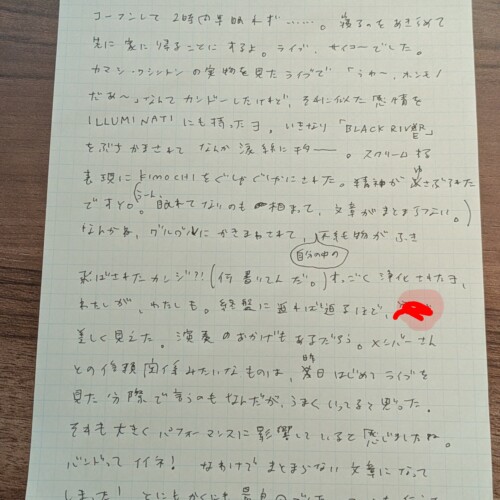 コーフンして2時間半眠れず……。寝るのをあきらめて
先に家に帰ることにするよ。ライブ、サイコーでした。
カマシ・ワシントンの実物を見たライブで「うわ〜、ホンモノ
だぁ〜」なんてカンドーしたけれど、それに似た感情を
ILLUMINATIにも持ったヨ。いきなり「BLACK RIVER」
をぶちかまされてなんか涙線に
スクリームする
表現にKIMOCHIをぐしゃぐしゃにされた。精神がゆさぶられた
ですYO。(うーん、眠れてないのも相まって、文章がまとまらない。)
なんかね、グルグルにかきまわされて、不純物がふき
自分の中の
飛ばされたカンジ?!(何書いてんだ。)すっごく浄化されたョ、
わたしが、わたしも。終盤に迫れば迫るほど、
美しく見えた。演奏のおかげもあるだろう。メンバーさん
との信頼関係みたいなものは、昨日はじめてライブを
見た分際で言うのもなんだが、うまくいってると思った。
それも大きくパフォーマンスに影響していると感じましたね。
バンドってイイネ! なわけでまとまらない文章になって
しまった! とにもかくにも最高の